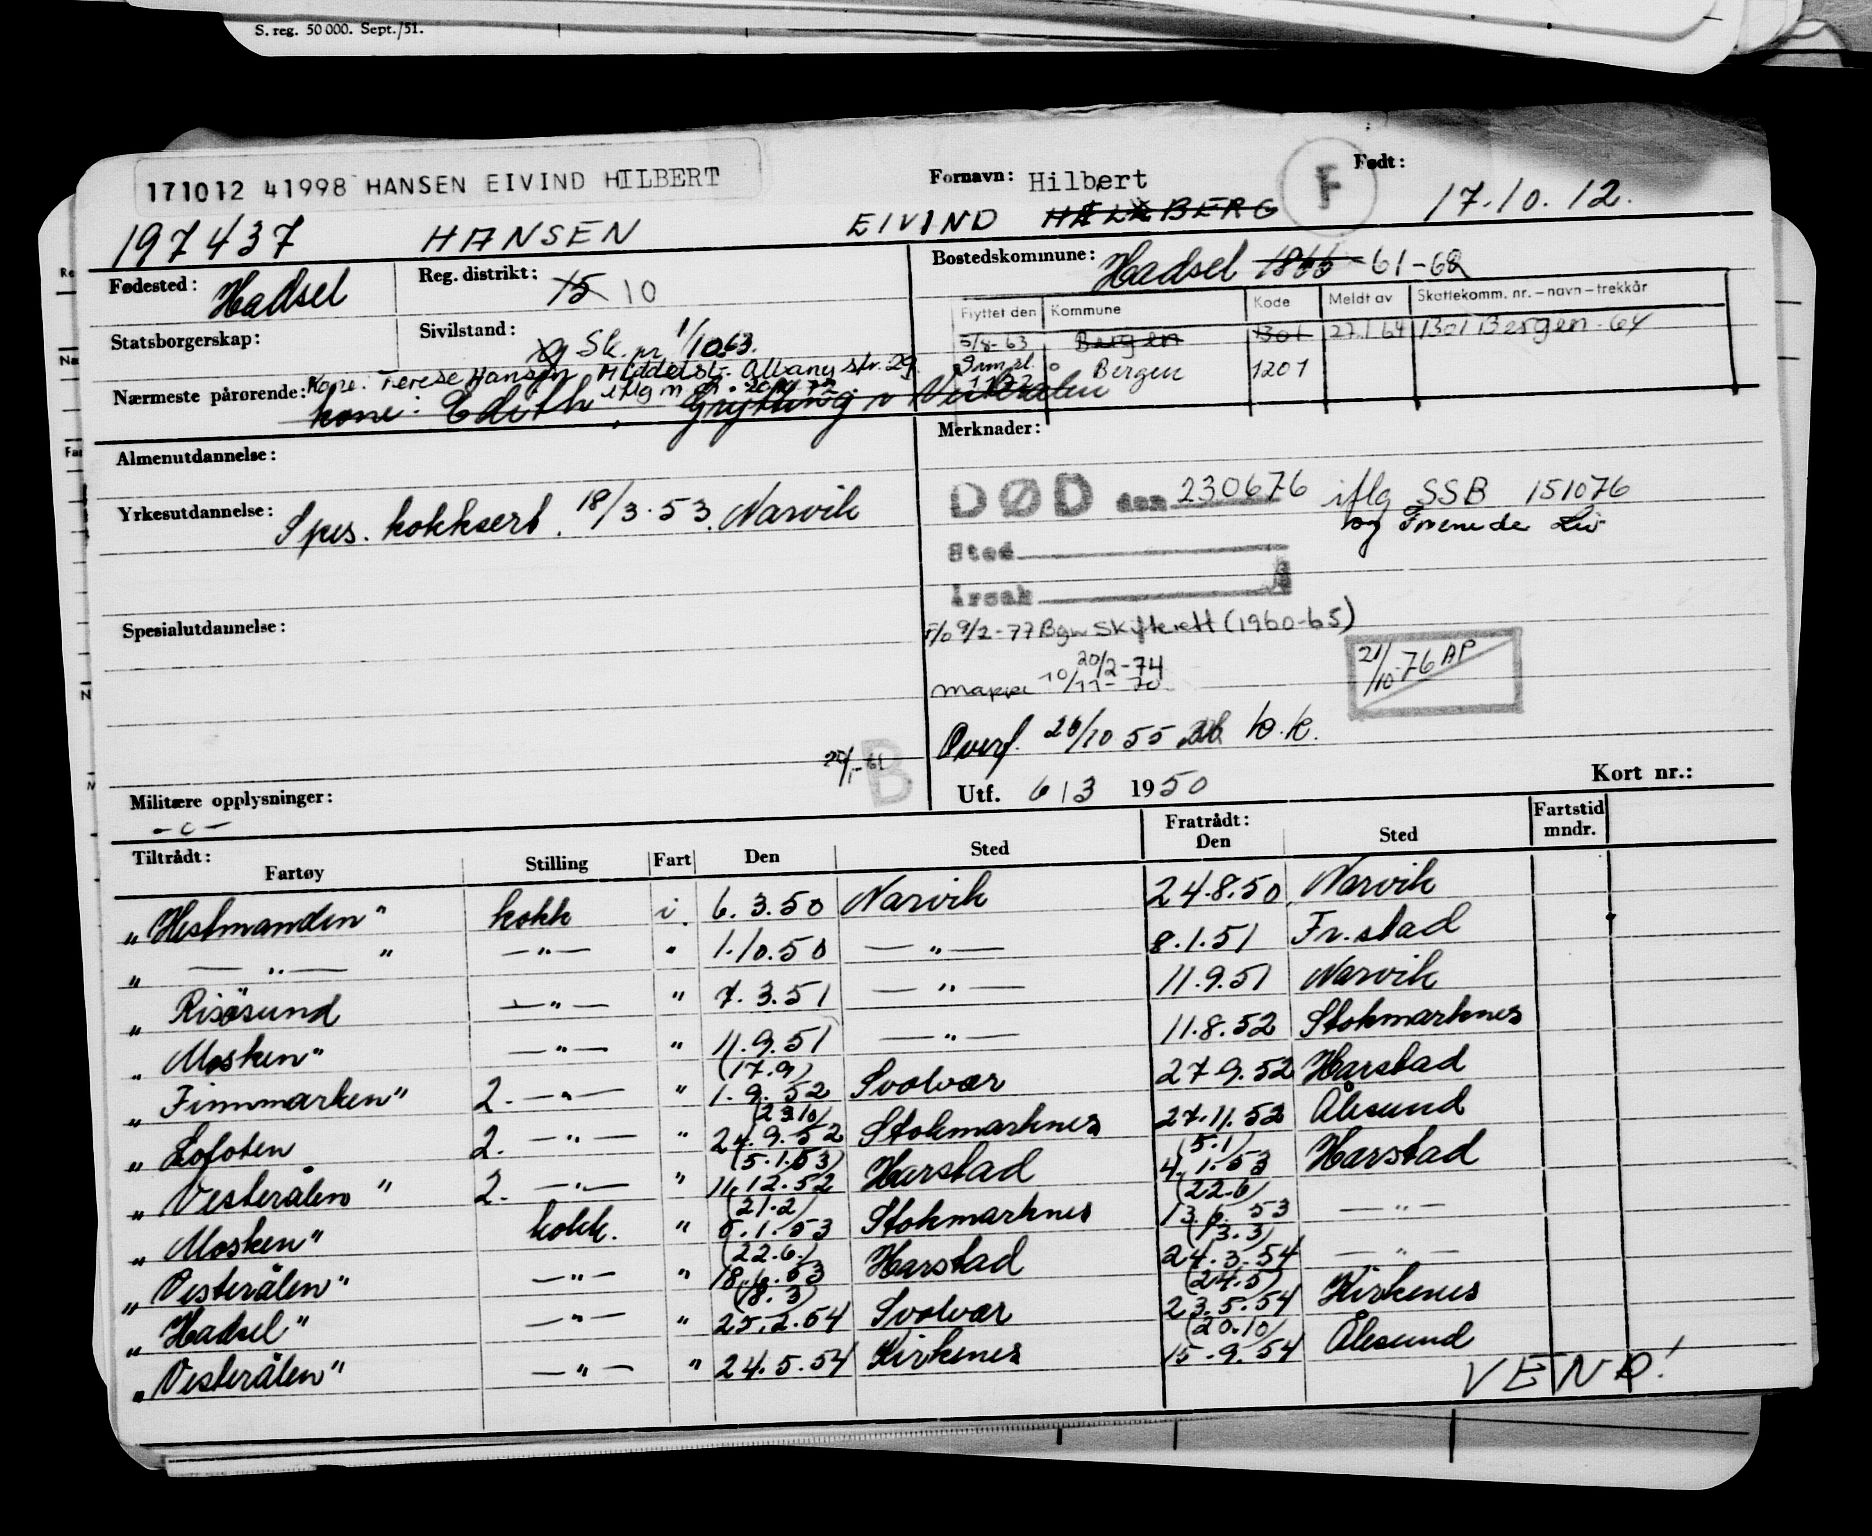 S. reg. 50 000. Sept./51.
171012 41998 HANSEN EIVIND HILBERT
Fornavn: Hilbert
F
Født:
197437 HANSEN EIVIND 17.10.12.
Fødested: Hadsel
Reg. distrikt: 15 10
Bostedskommune: Hadsel 1866 - 61-62
Flyttet den Kommune Kode Meldt av Skattekomm. nr. – navn – trekkår
Statsborgerskap:
Sivilstand: og Sk. pr. 1/10.63.
5/8-63 Bergen 1301 27.1.64 1301 Bergen - 64
Bergen 1201
Kone: Terese Hansen, Albany str. 29.
Nærmeste pårørende: kone: Edith, Grytting
Merknader:
Almenutdannelse:
DØD den 230676 iflg SSB 151076
Yrkesutdannelse: Spes. kokksert. 18/3.53. Narvik
Sted
Årsak
F/o 9/2-77 Bgn Skifterett (1960-65)
Spesialutdannelse:
20/2-74
mappe 10/11-70
21/10-76 AP
Overf. 26/10 55 k.k.
B
Utf. 6/3 1950
Kort nr.:
Militære opplysninger:
Tiltrådt:
Fratrådt:
Fartøy Stilling Fart Den Sted Den Sted Fartstid mndr.
"Hestmanden" kokk i. 6.3.50 Narvik 24.8.50 Narvik
" — " — " — " — " 1.10.50 — " — 8.1.51 Fr.stad
" Risøsund — " — " 7.3.51 — " — 11.9.51 Narvik
" Mosken" — " — " 11.9.51 — " — 11.8.52 Stokmarknes
(17.9)
" Finnmarken" 2. — " — " 1.9.52 Svolvær 27.9.52 Harstad
(23.10)
" Lofoten 2. — " — " 24.9.52 Stokmarknes 27.11.52 Ålesund
(5.1.53) (5.1)
" Vesterålen " 2. — " — " 11.12.52 Harstad 4.1.53 Harstad
(21.2) (22.6)
" Mosken" kokk. " 5.1.53 Stokmarknes 13.6.53 — " —
(22.6.) (13.3)
" Vesterålen" — " — " 18.6.53 Harstad 24.3.54 — " —
(18.3) (24.5)
" Hadsel" — " — " 25.2.54 Svolvær 23.5.54 Kirkenes
(20.10)
" Vesterålen" — " — " 24.5.54 Kirkenes 15.9.54 Ålesund
VEND!